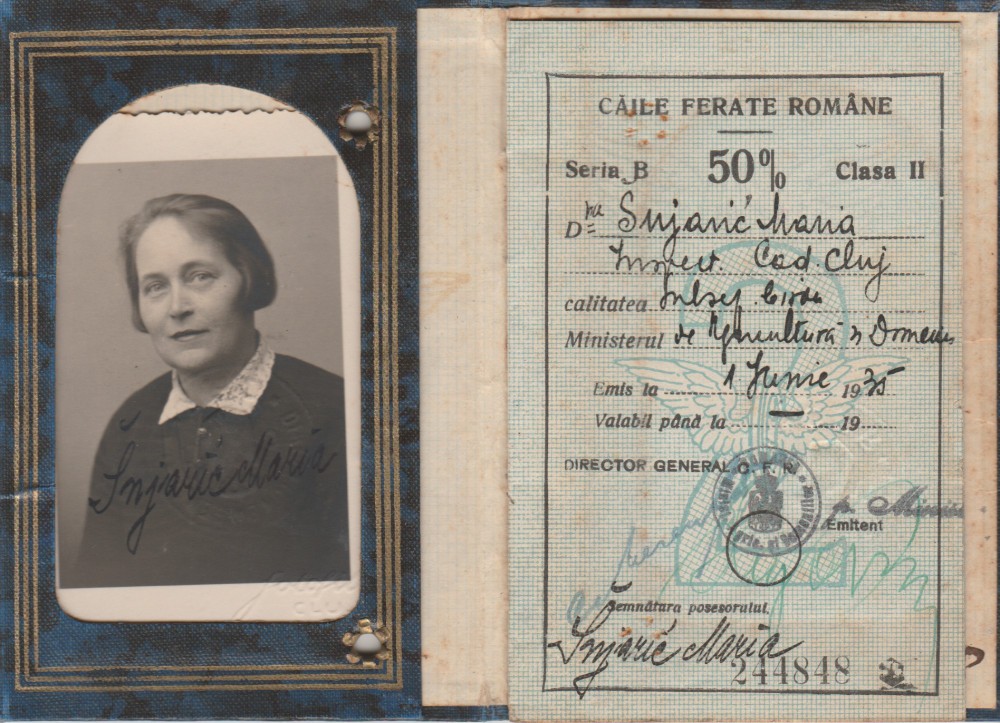 Šnjarić Maria
CLU
CĂILE FERATE ROMÂNE
Seria B 50% Clasa II
D Šnjarić Maria
Inspect. Cad. Cluj
calitatea
Ministerul de Agricultură și Domenii
Emis la 1 Junie 1935
Valabil până la — 19
DIRECTOR GENERAL C. F. R.
p. Minis
Emitent
Semnătura posesorului.
Šnjarić Maria
244848